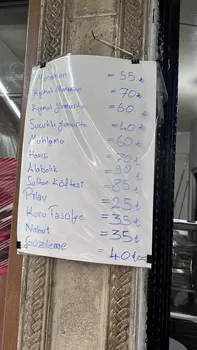 Menemen = 55 ₺
Kıymalı Menemen = 70 ₺
Kıymalı Yumurta = 60
Sucuklu Yumurta = 40 ₺
Muhlama = 60 ₺
Hamsi = 70 ₺
Alabalık = 90 ₺
Sultan Köftesi = 85 ₺
Pilav = 25 ₺
Kuru Fasulye = 35 ₺
Nohut = 35 ₺
Gözleme = 40 ₺